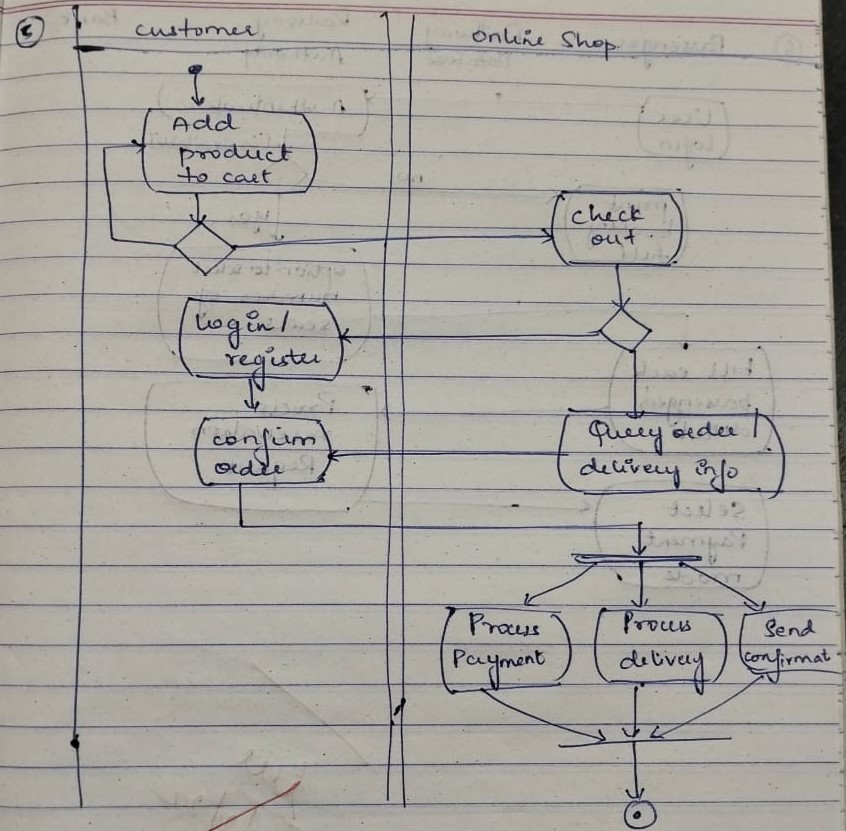 5
customer
Online Shop
Add
product
to cart
check
out
Login /
register
confirm
order
Query order /
delivery info
Process
Payment
Process
delivery
Send
confirmat